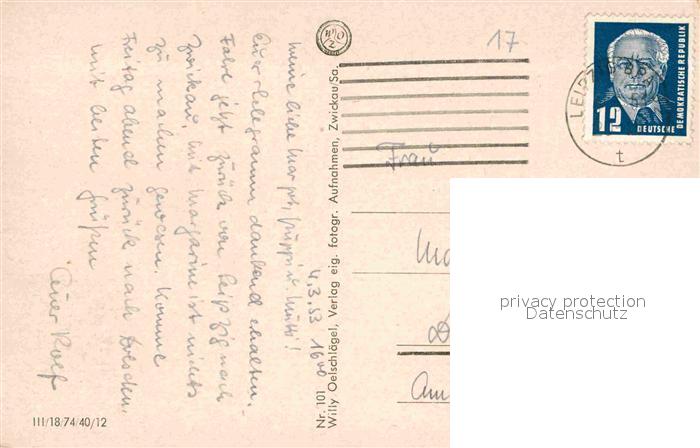 4.3.53 16⁰⁰
meine liebe Margot, Puppi u. Mutti!
Euer Telegramm dankend erhalten.
Fahre jetzt zurück von Leipzig nach
Zwickau, mit Margarine ist nichts
zu machen gewesen. Komme
Freitag abend zurück nach Dresden.
mit besten Grüßen
Euer Rolf
III/18/74/40/12
Nr. 101
Willy Oelschlägel, Verlag eig. fotogr. Aufnahmen, Zwickau/Sa.
17
12
DEUTSCHE
DEMOKRATISCHE REPUBLIK
LEIPZIG
t
Frau
Ma
D
Am
privacy protection
Datenschutz